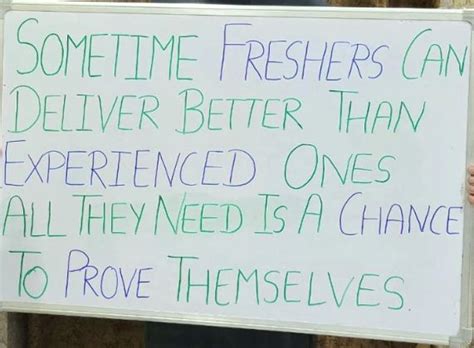 SOMETIME FRESHERS CAN
DELIVER BETTER THAN
EXPERIENCED ONES
ALL THEY NEED IS A CHANCE
TO PROVE THEMSELVES.